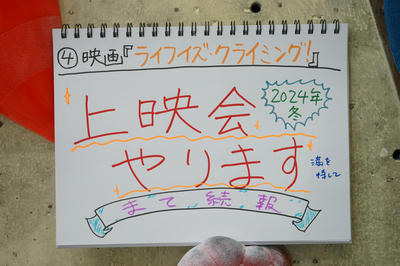 ④映画『ライフイズ・クライミング!』
上映会
2024年
冬
やります
満を
持して
まて続報